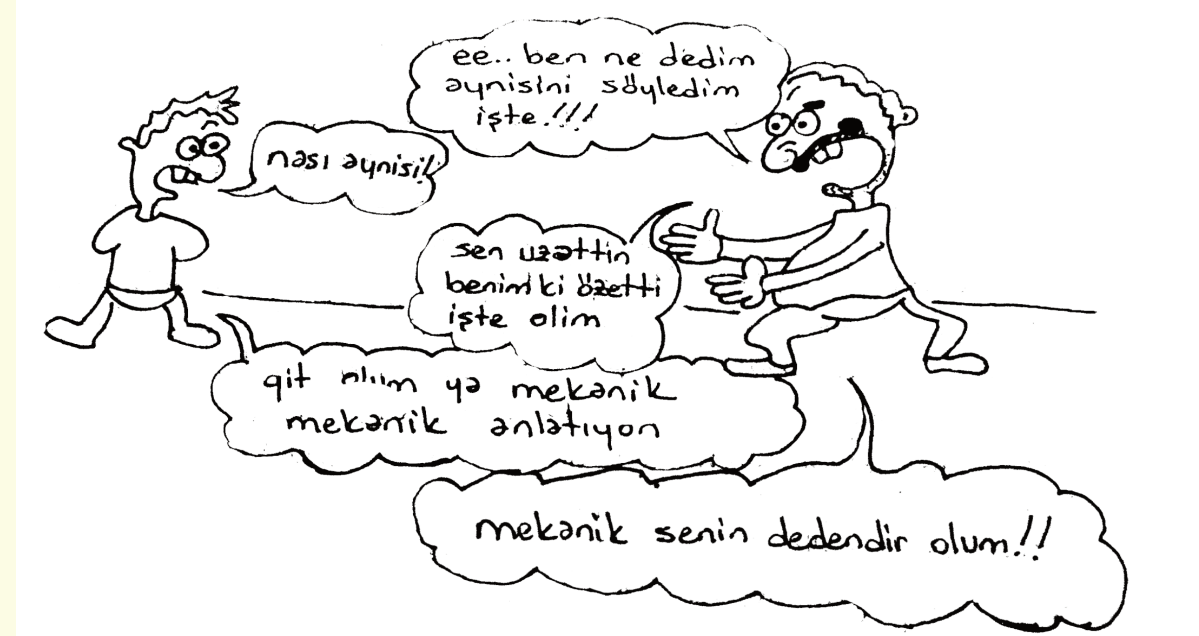 ee.. ben ne dedim
aynisini söyledim
işte!!!
nası aynisi!!
sen uzattin
benim ki özetti
işte olim
git olum ya mekanik
mekanik anlatıyon
mekanik senin dedendir olum!!